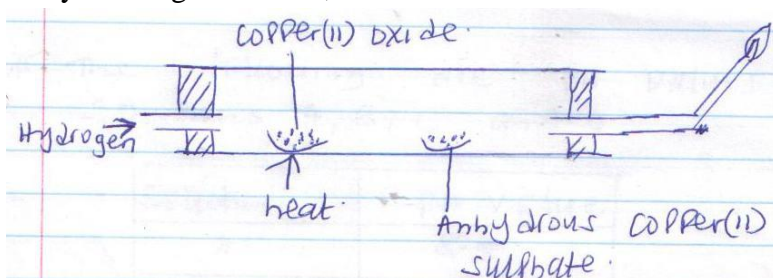 copper(II) oxide.
Hydrogen
heat.
Anhydrous copper(II)
sulphate.